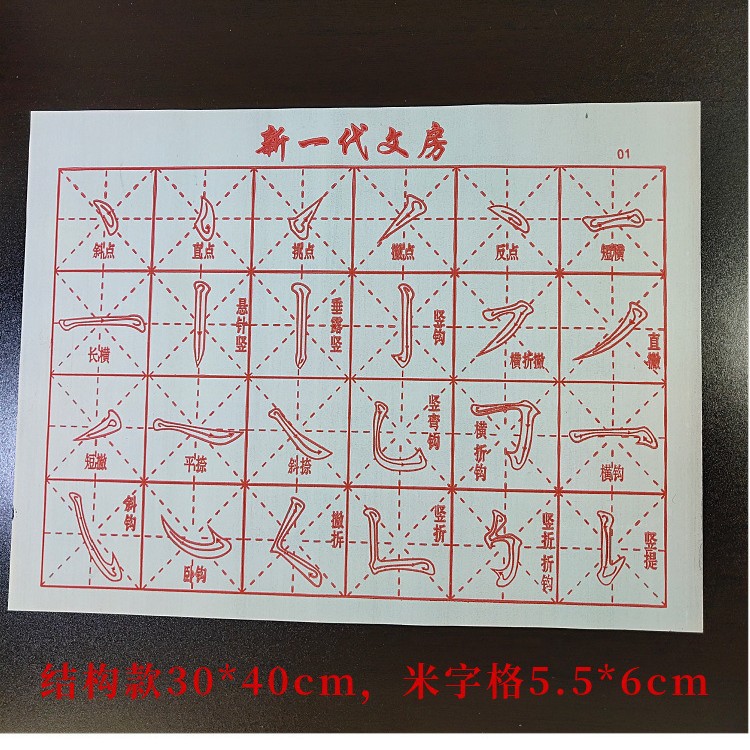 新一代文房
01
斜点 直点 挑点 撇点 反点 短横
长横 悬针竖 垂露竖 竖钩 横折撇 直撇
短撇 平捺 斜捺 竖弯钩 横折钩 横钩
斜钩 卧钩 撇折 竖折 竖折折钩 竖提
结构款30*40cm，米字格5.5*6cm